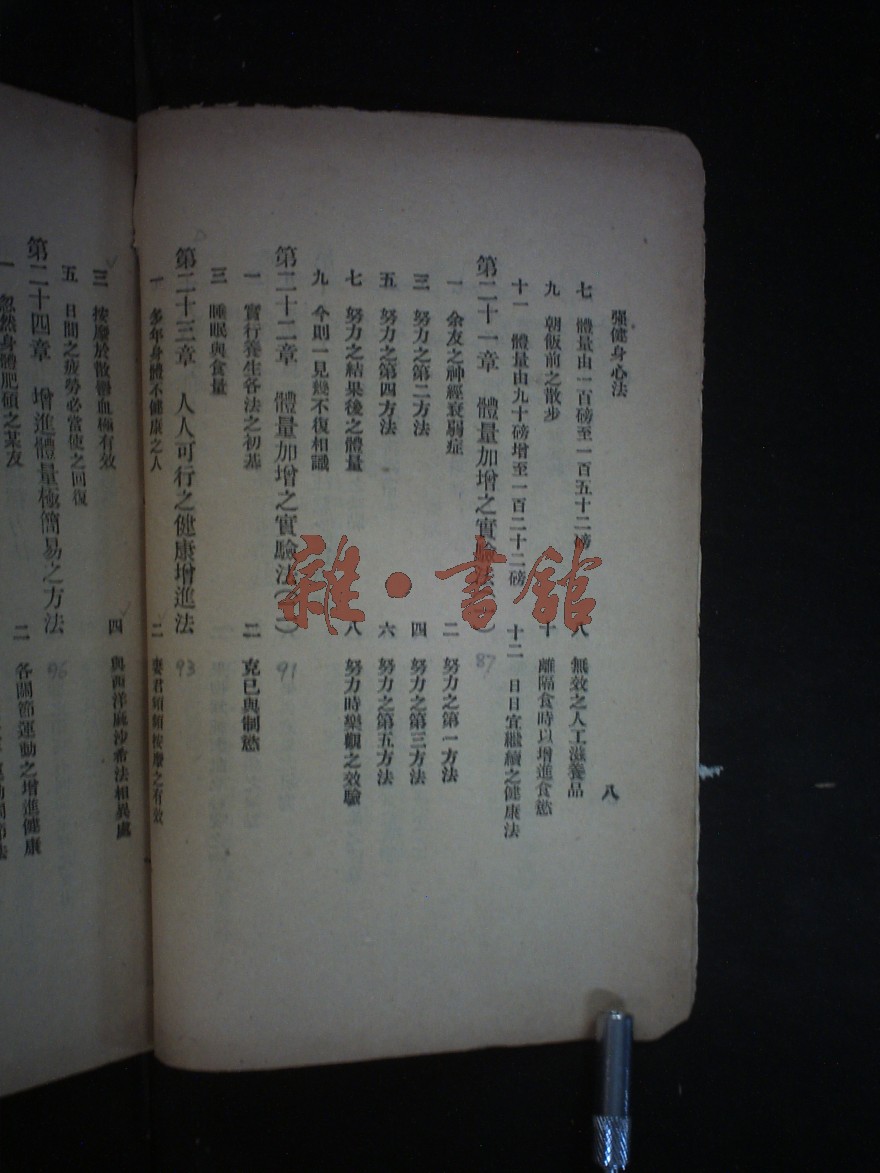 强健身心法
八
七 體量由一百磅至一百五十二磅 八 無效之人工滋養品
九 朝飯前之散步 十 離隔食時以增進食慾
十一 體量由九十磅增至一百二十二磅 十二 日日宜繼續之健康法
第二十一章 體量加增之實驗法 87
一 余友之神經衰弱症 二 努力之第一方法
三 努力之第二方法 四 努力之第三方法
五 努力之第四方法 六 努力之第五方法
七 努力之結果後之體量 八 努力時樂觀之效驗
九 今則一見幾不復相識
第二十二章 體量加增之實驗法(二) 91
一 實行養生各法之初基 二 克己與制慾
三 睡眠與食量
第二十三章 人人可行之健康增進法 93
一 多年身體不健康之人 二 妻君頻頻按摩之有效
三 按摩於散鬱血極有效 四 與西洋麻沙希法相異處
五 日間之疲勞必當使之回復
第二十四章 增進體量極簡易之方法 96
一 忽然身體肥碩之某友 二 各關節運動之增進健康
雜·書館